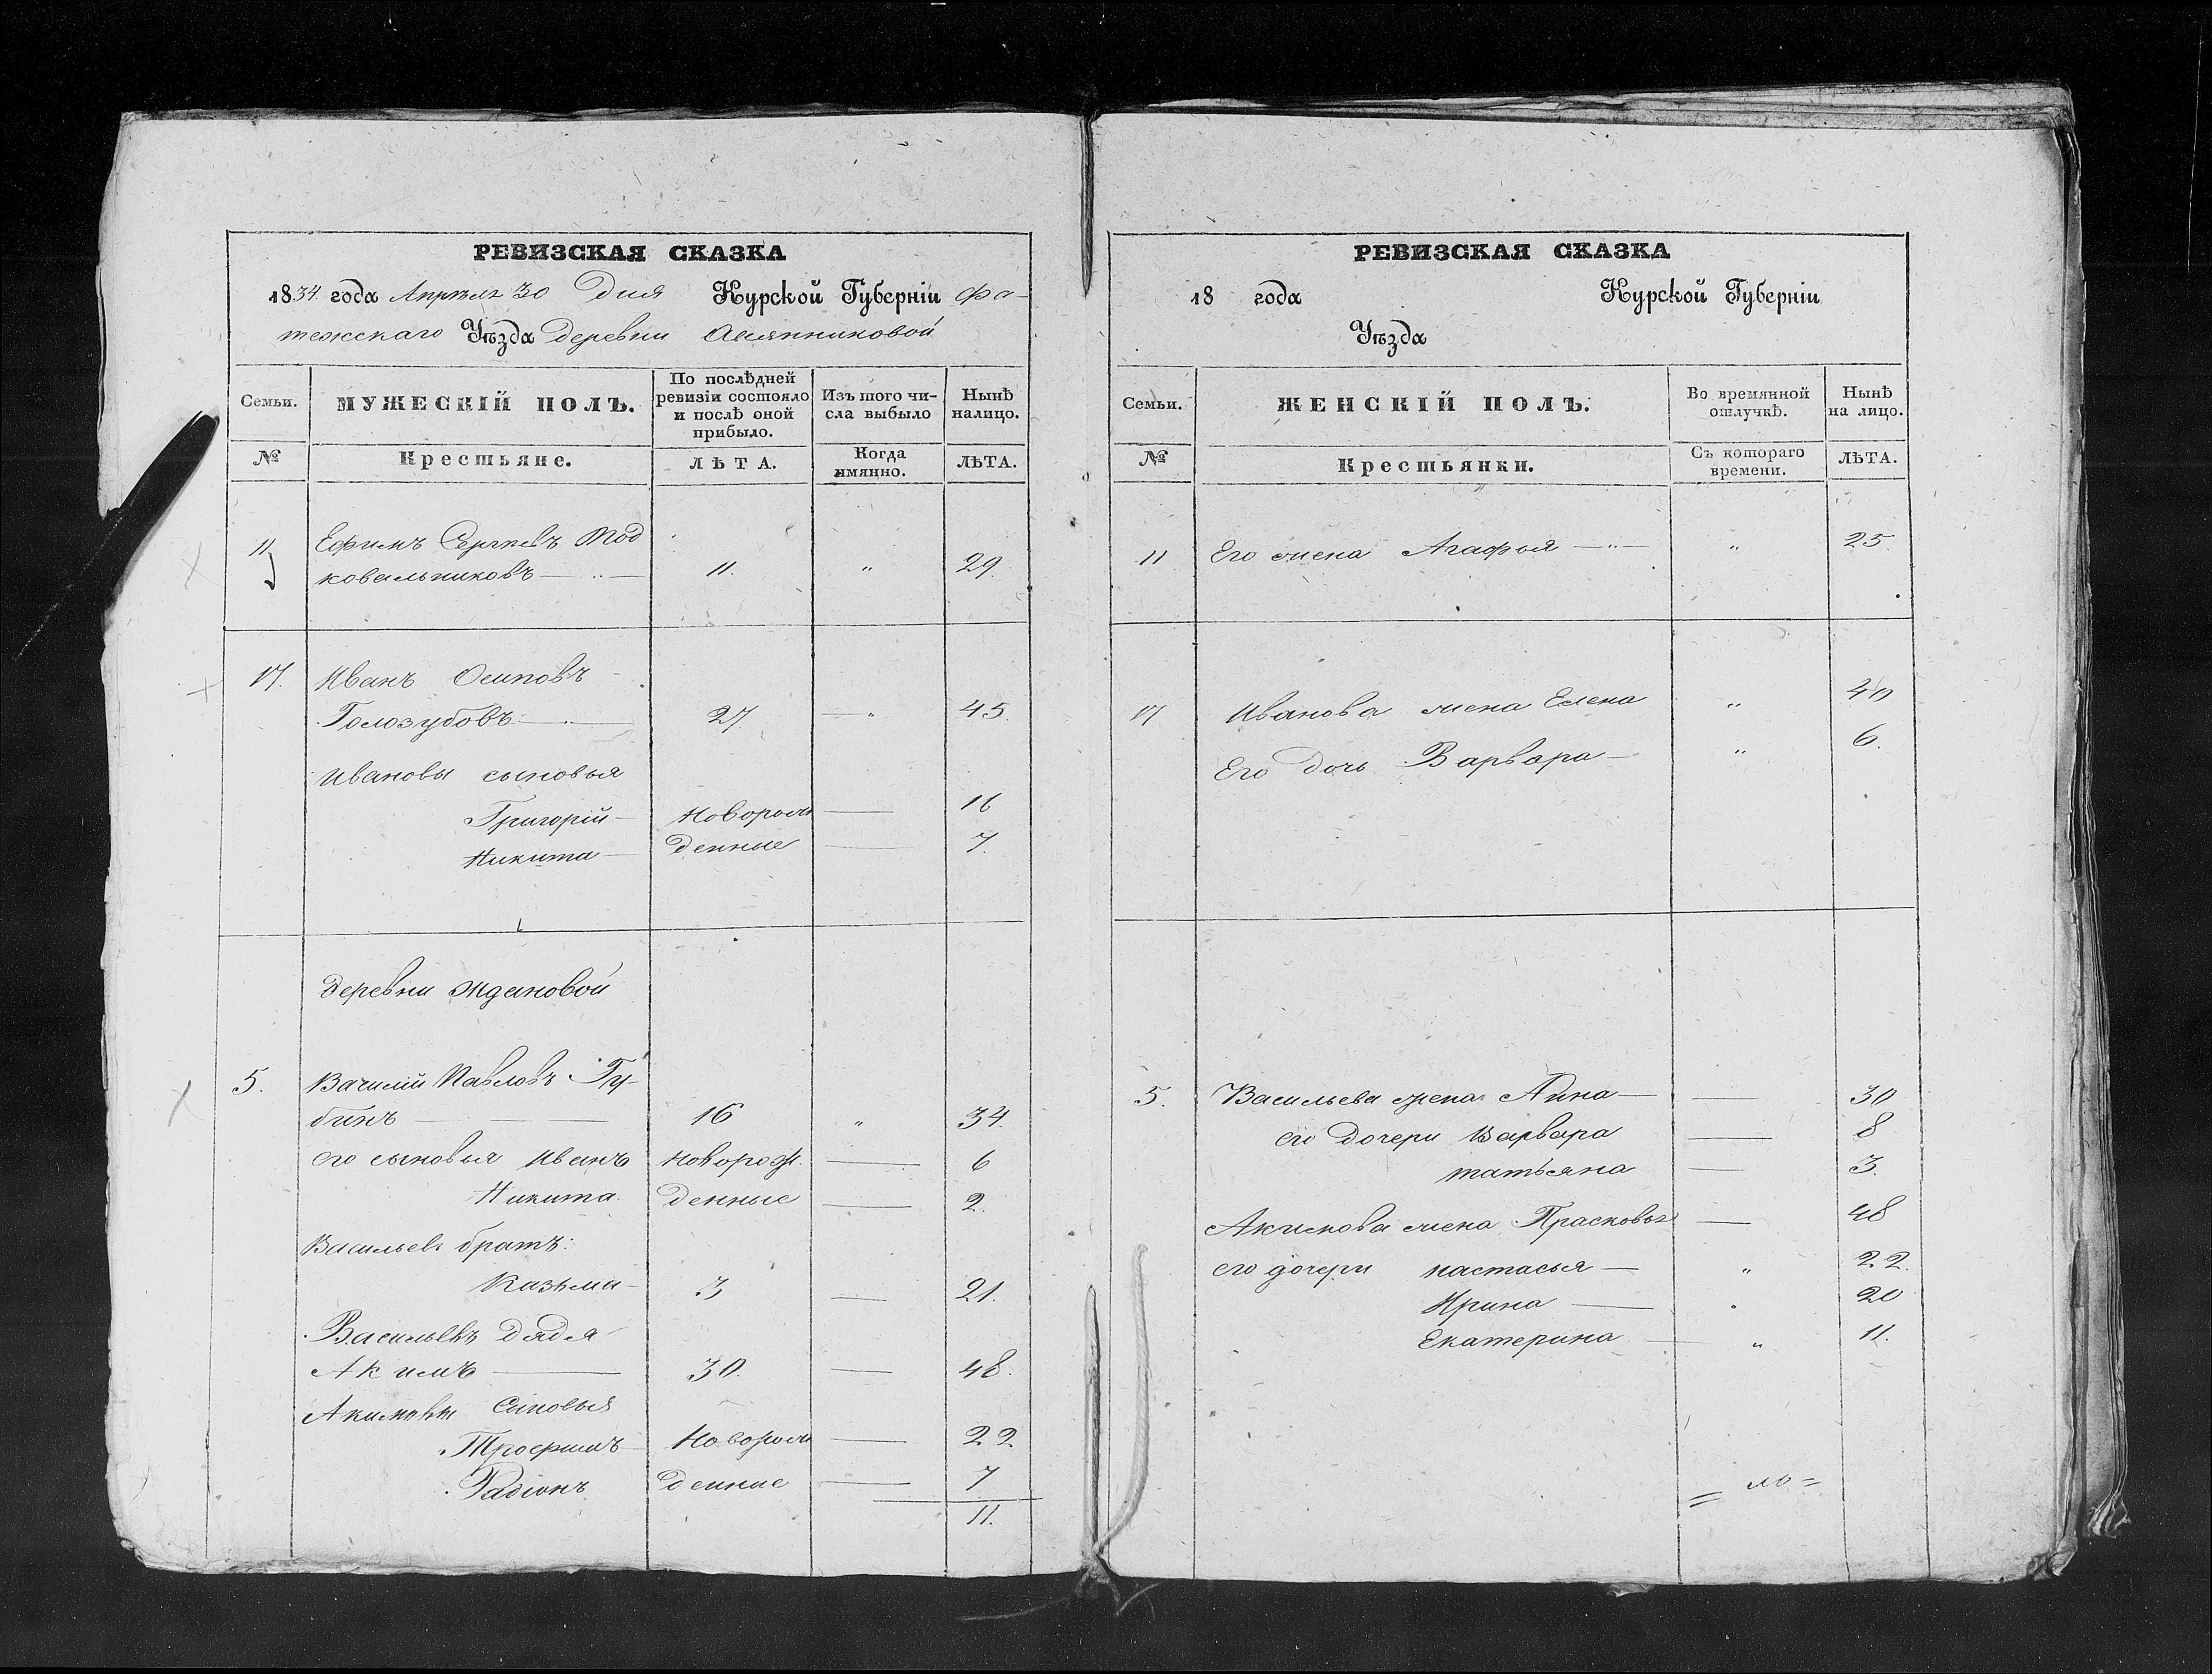 РЕВИЗСКАЯ СКАЗКА
1834 года Апреля 30 Дня Курской Губерніи Фа-
тежскаго Уѣзда деревни Авсянниковой
Семьи.
МУЖЕСКІЙ ПОЛЪ.
По послѣдней
ревизіи состояло
и послѣ оной
прибыло.
Изъ того чи-
сла выбыло
Нынѣ
налицо.
№
Крестьяне.
ЛѢТА.
Когда
имянно.
ЛѢТА.
11
Ефимъ Сергѣевъ Под
ковальниковъ — " —
11. " 29.
17. Иванъ Осиповъ
Голозубовъ — 27 — " 45.
Ивановы сыновья
Григорій — Новорож — 16
Никита — денные — 7.
деревни Ждановой
5. Василій Павловъ Гу-
бинъ — 16 " 34.
его сыновья Иванъ Новорож. — 6
Никита денные — 2.
Васильевъ братъ:
Казьма — 3 — 21.
Васильевъ дядя
Акимъ — 30. — 48.
Акимовы Сыновья
Трофимъ — Новорож — 22
Радіонъ денные — 7
11.
РЕВИЗСКАЯ СКАЗКА
18 года Курской Губерніи
Уѣзда
Семьи.
ЖЕНСКІЙ ПОЛЪ.
Во времянной
отлучкѣ.
Нынѣ
на лицо.
№
Крестьянки.
Съ котораго
времени.
ЛѢТА.
11 Его жена Агафья — " — " 25.
17 Иванова жена Елена " 40
Его дочь Варвара — " 6.
5. Васильева жена Анна — — 30
его дочери Варвара — 8
татьяна — 3.
Акимова жена Прасковья — 48
его дочери настасья — " 22.
Ирина — " 20
Екатерина — " 11.